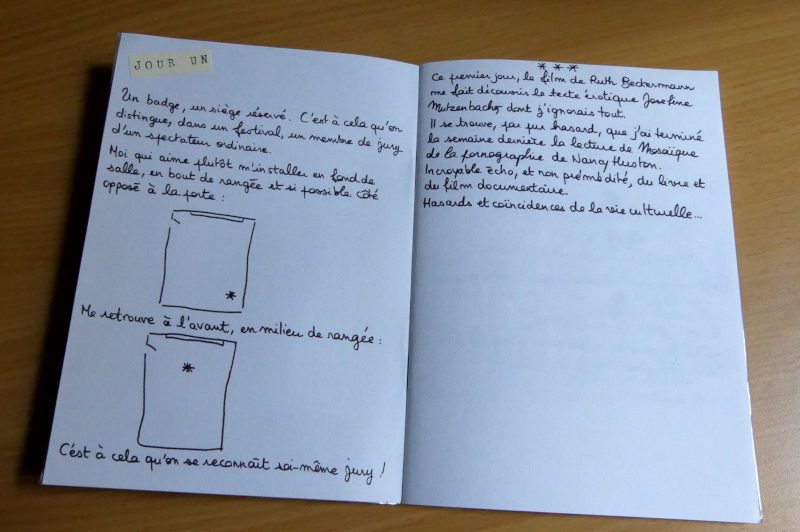 JOUR UN
Un badge, un siège réservé. C'est à cela qu'on
distingue, dans un festival, un membre de jury
d'un spectateur ordinaire.
Moi qui aime plutôt m'installer en fond de
salle, en bout de rangée et si possible côté
opposé à la porte :
*
Me retrouve à l'avant, en milieu de rangée :
*
C'est à cela qu'on se reconnaît soi-même jury !
* * *
Ce premier jour, le film de Ruth Beckermann
me fait découvrir le texte érotique Josefine
Mutzenbacher, dont j'ignorais tout.
Il se trouve, par pur hasard, que j'ai terminé
la semaine dernière la lecture de Mosaïque
de la pornographie de Nancy Huston.
Incroyable écho, et non prémédité, du livre et
du film documentaire.
Hasards et coïncidences de la vie culturelle...